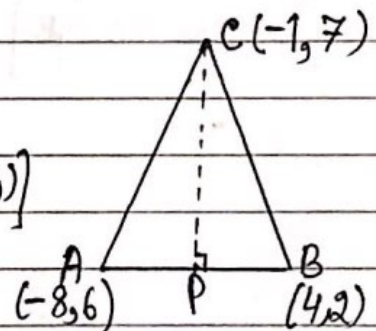 C(-1, 7)
)]
A B
(-8,6) P (4,2)